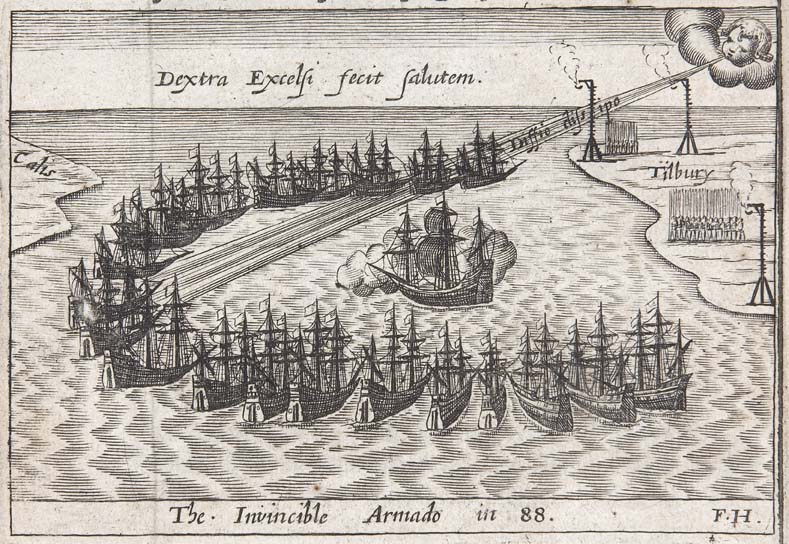 Dextra Excelſi fecit ſalutem.
Difflo diſsipo
Calis
Tilbury
The Invincible Armado in 88.
F.H.